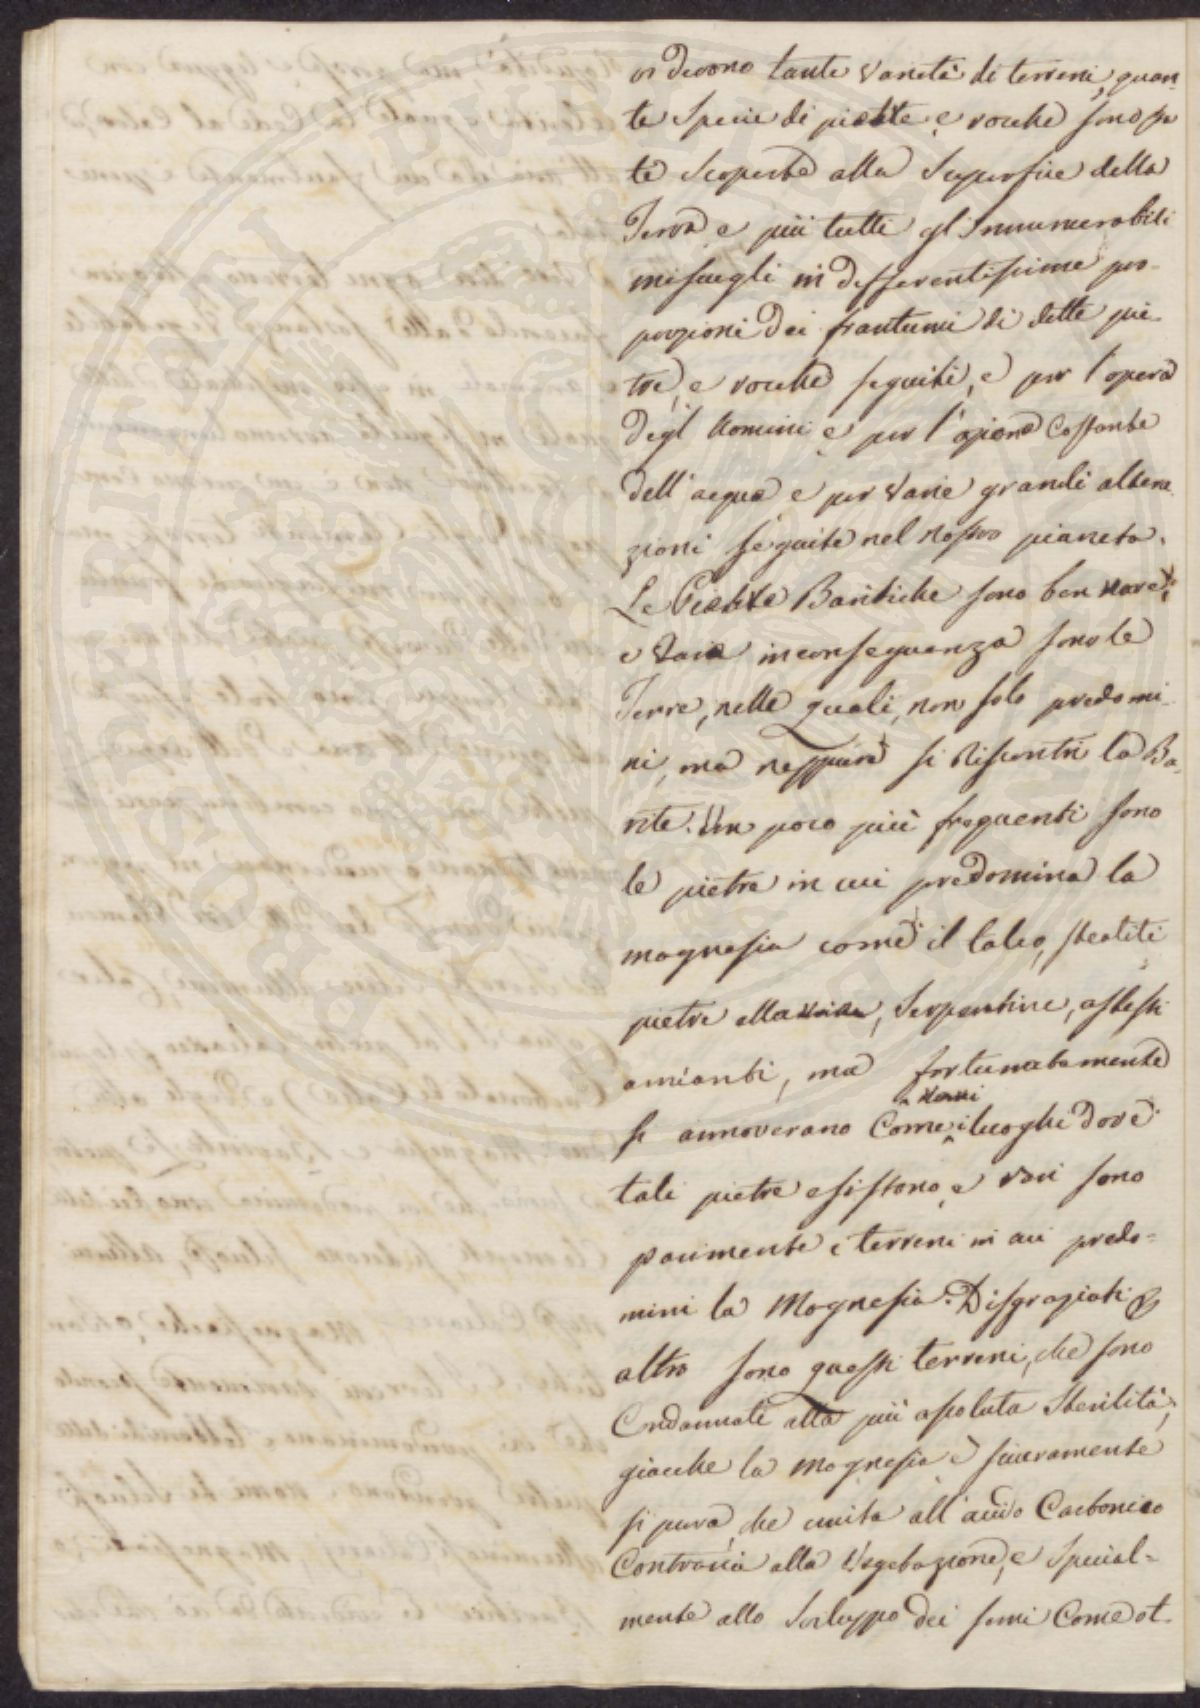 vi devono tante varietà di terreni, quan-
te specie di pietre e rocche sono sta
te scoperte alla superficie della
Terra e più tutti gl'innumerabili
miscugli in differentissime pro-
porzioni dei frantumi di dette pie-
tre, e rocche seguiti, e per l'opera
degl'Uomini e per l'azione costante
dell'acqua e per varie grandi altera
zioni seguite nel nostro pianeta.
Le Pietre Baritiche sono ben rare,
e rare in conseguenza sono le
Terre, nelle quali, non solo predomi-
ni, ma neppure si riscontri la Ba-
rite. Un poco più frequenti sono
le pietre in cui predomina la
magnesia come il talco, steatiti
pietre ollari, Serpentine, asbesti
amianti, ma fortunatamente
si annoverano come rari i luoghi dove
tali pietre esistono, e rari sono
parimente i terreni in cui predo-
mini la Magnesia. Disgraziati
altro sono questi terreni, che sono
Condannati alla più assoluta sterilità,
giacche la magnesia è sicuramente
si pura, che unita all'acido Carbonico
Contraria alla Vegetazione, e special-
mente allo sviluppo dei semi come ot-